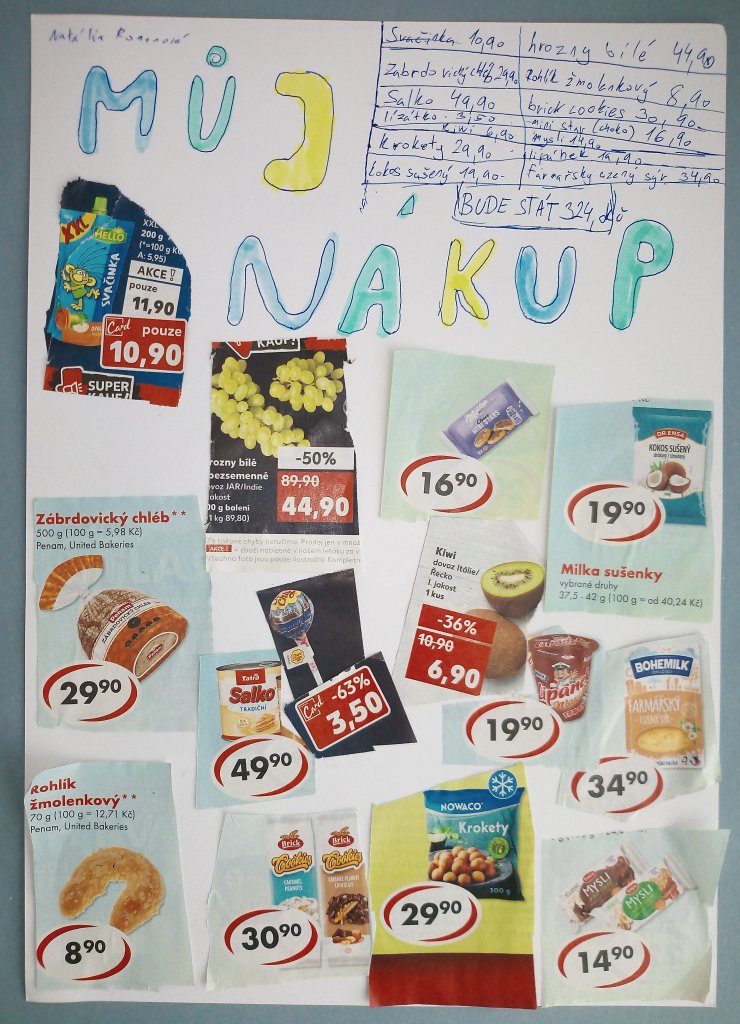 Natália
Svačinka 10,90
hrozny bílé 44,90
Zábrdovický chléb 29,90
Rohlík žmolenkový 8,90
Salko 49,90
brick cookies 30,90-
lízátko · 3,50
mini star (choko) 16,90
Kiwi 6,90
mysli 14,90
Krokety 29,90
lipánek 19,90
Kokos sušený 19,90-
farmářský uzený sýr 34,90
BUDE STÁT 324,
MŮJ
NÁKUP
XXL
HELLO
SVAČINKA
XXL
200 g
(*=100 g Kč
A: 5,95)
AKCE!
pouze
11,90
Card pouze
10,90
SUPER
KAUF!
KAUF!
rozny bílé
bezsemenné
ovoz JAR/Indie
jakost
00 g balení
1 kg 89,80)
-50%
89,90
44,90
AKCE
Všechna fota jsou pouze ilustrační.
Milka
MINI STARS
16 90
DR.ENSA
KOKOS SUŠENÝ
19 90
Milka sušenky
vybrané druhy
37,5 - 42 g (100 g = od 40,24 Kč)
Zábrdovický chléb**
500 g (100 g = 5,98 Kč)
Penam, United Bakeries
PENAM
ZÁBRDOVICKÝ CHLÉB
29 90
Tatra
Salko
TRADIČNÍ
49 90
Chupa Chups
Card -63%
3,50
Kiwi
dovoz Itálie/
Řecko
I. jakost
1 kus
-36%
10,90
6,90
Lipánek
19 90
BOHEMILK
FARMÁŘSKÝ
UZENÝ SÝR
34 90
Rohlík
žmolenkový**
70 g (100 g = 12,71 Kč)
Penam, United Bakeries
8 90
Brick
Cookies
CARAMEL
PEANUTS
Brick
Cookies
30 90
NOWACO
Krokety
300 g
29 90
MYSLI
MYSLI
14 90